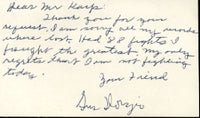 Dear Mr Karp.
Thank you for your
request, I am sorry all my records
where lost I Had 88 fights I
fought the greatest, my only
regrets that I am not fighting
today.
Your Friend
Gus